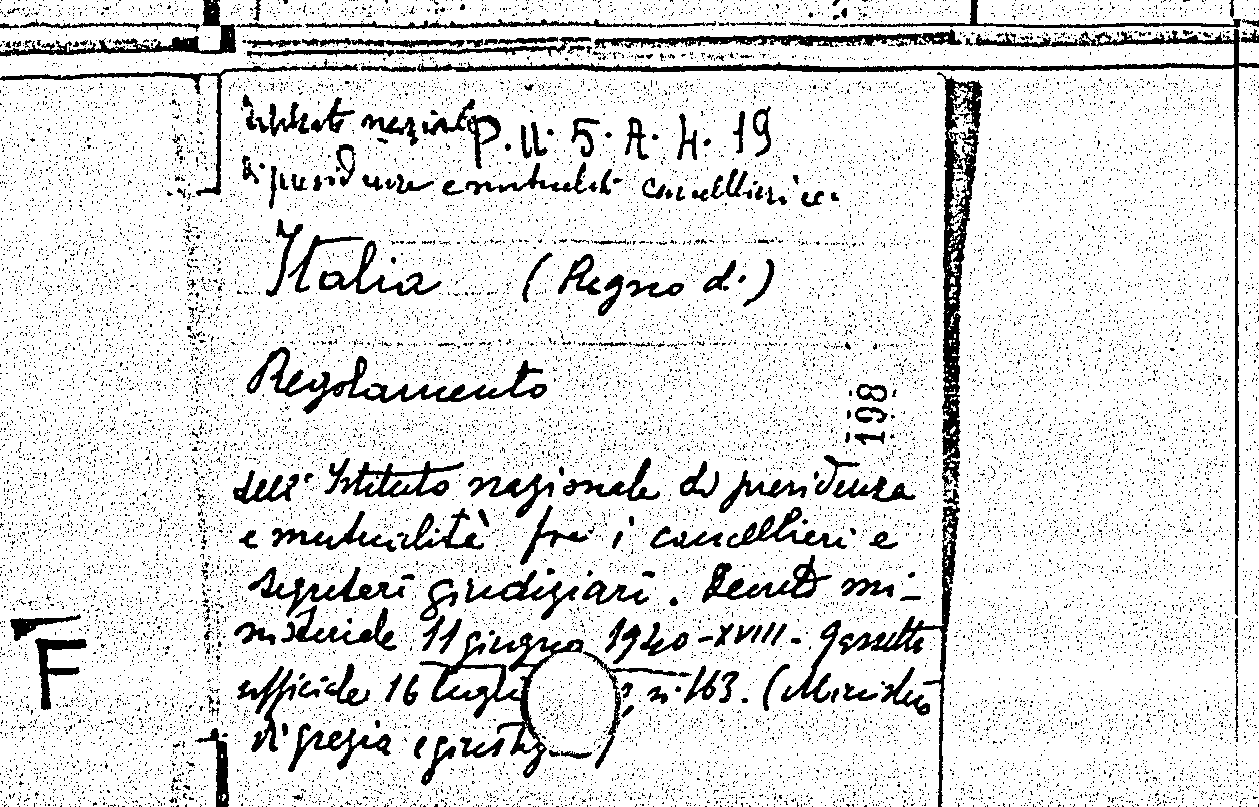 Istituto nazionale P. II. 5. A. 4. 19
di previdenza e mutualità cancellieri ecc.
Italia (Regno d')
Regolamento
198
dell'Istituto nazionale di previdenza
e mutualità fra i cancellieri e
segretari giudiziari. Decreto mi-
nisteriale 11 giugno 1940-XVIII. Gazzetta
ufficiale 16 lugli , n. 163. (Ministero
di grazia e giustiz )
F